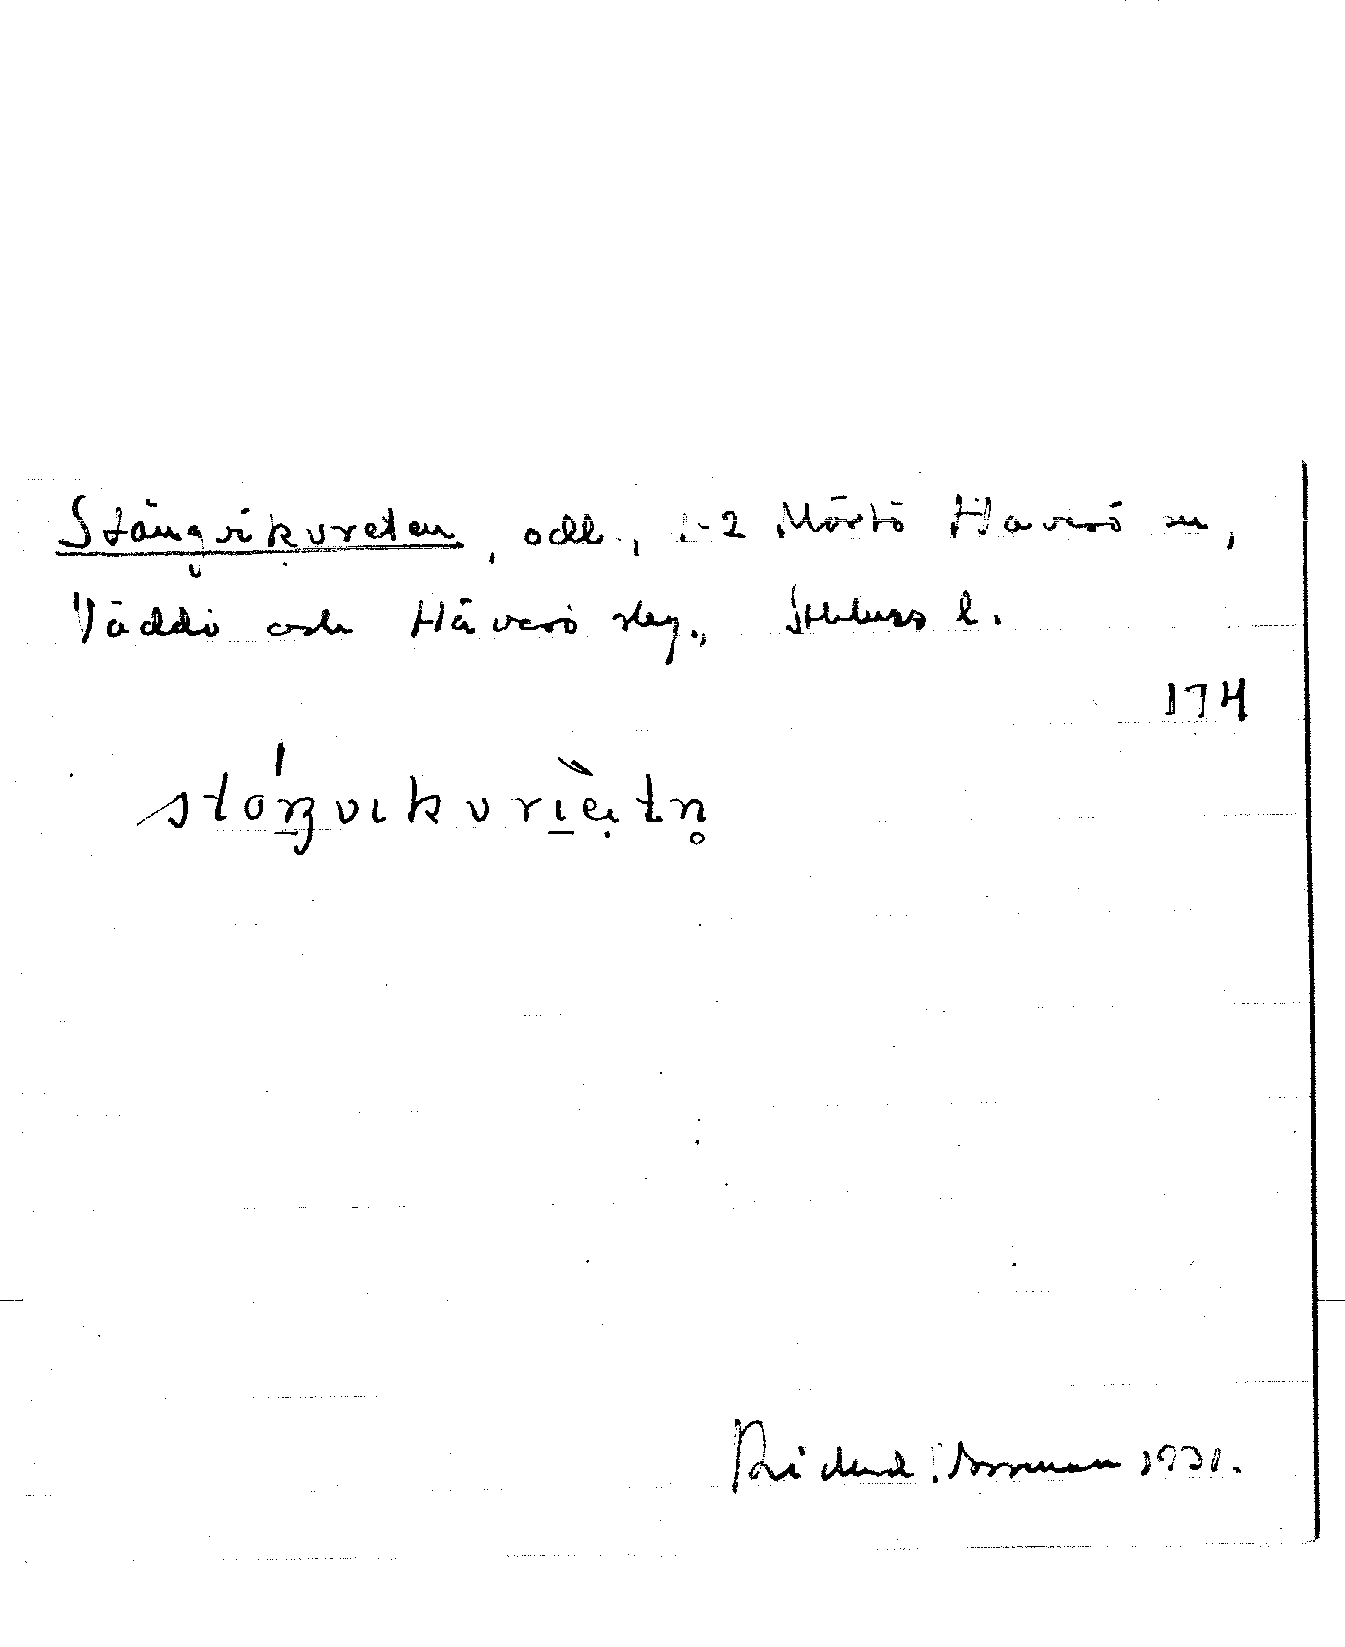 Stängvikvreten, odl., 1-2 Mörtö Häverö sn,
Väddö och Häverö skg., Sthlms l.
174
stóŋvikvrìẹtn̥
Rickard Norman 1931.